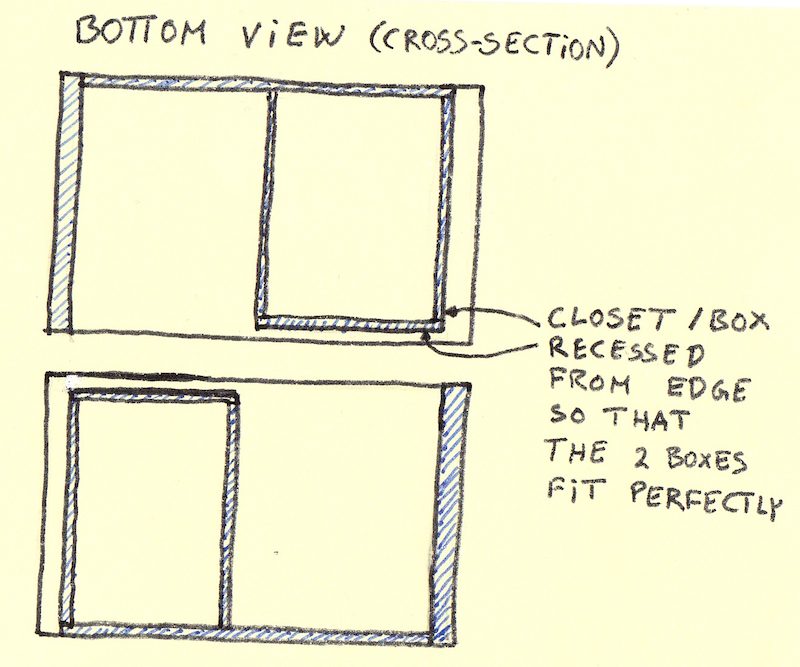 BOTTOM ViEW (CROSS-SECTiON)
CLOSET / BOX
RECESSED
FROM EDGE
SO THAT
THE 2 BOXES
FiT PERFECTLY